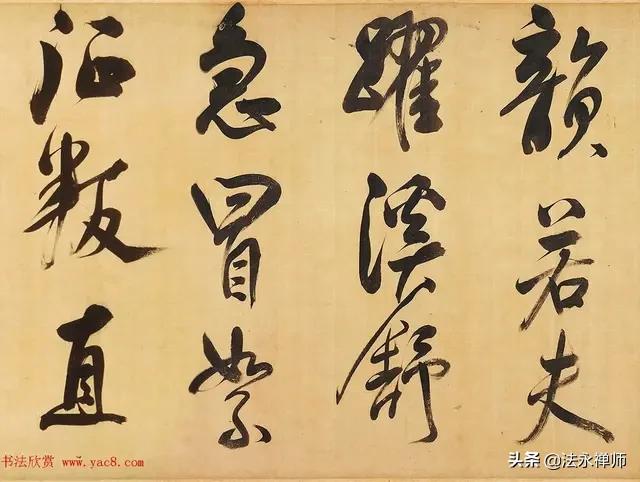 韻若夫
躍溪舒
急冒絮
征叛直
书法欣赏 www.yac8.com
头条 @法永禅师